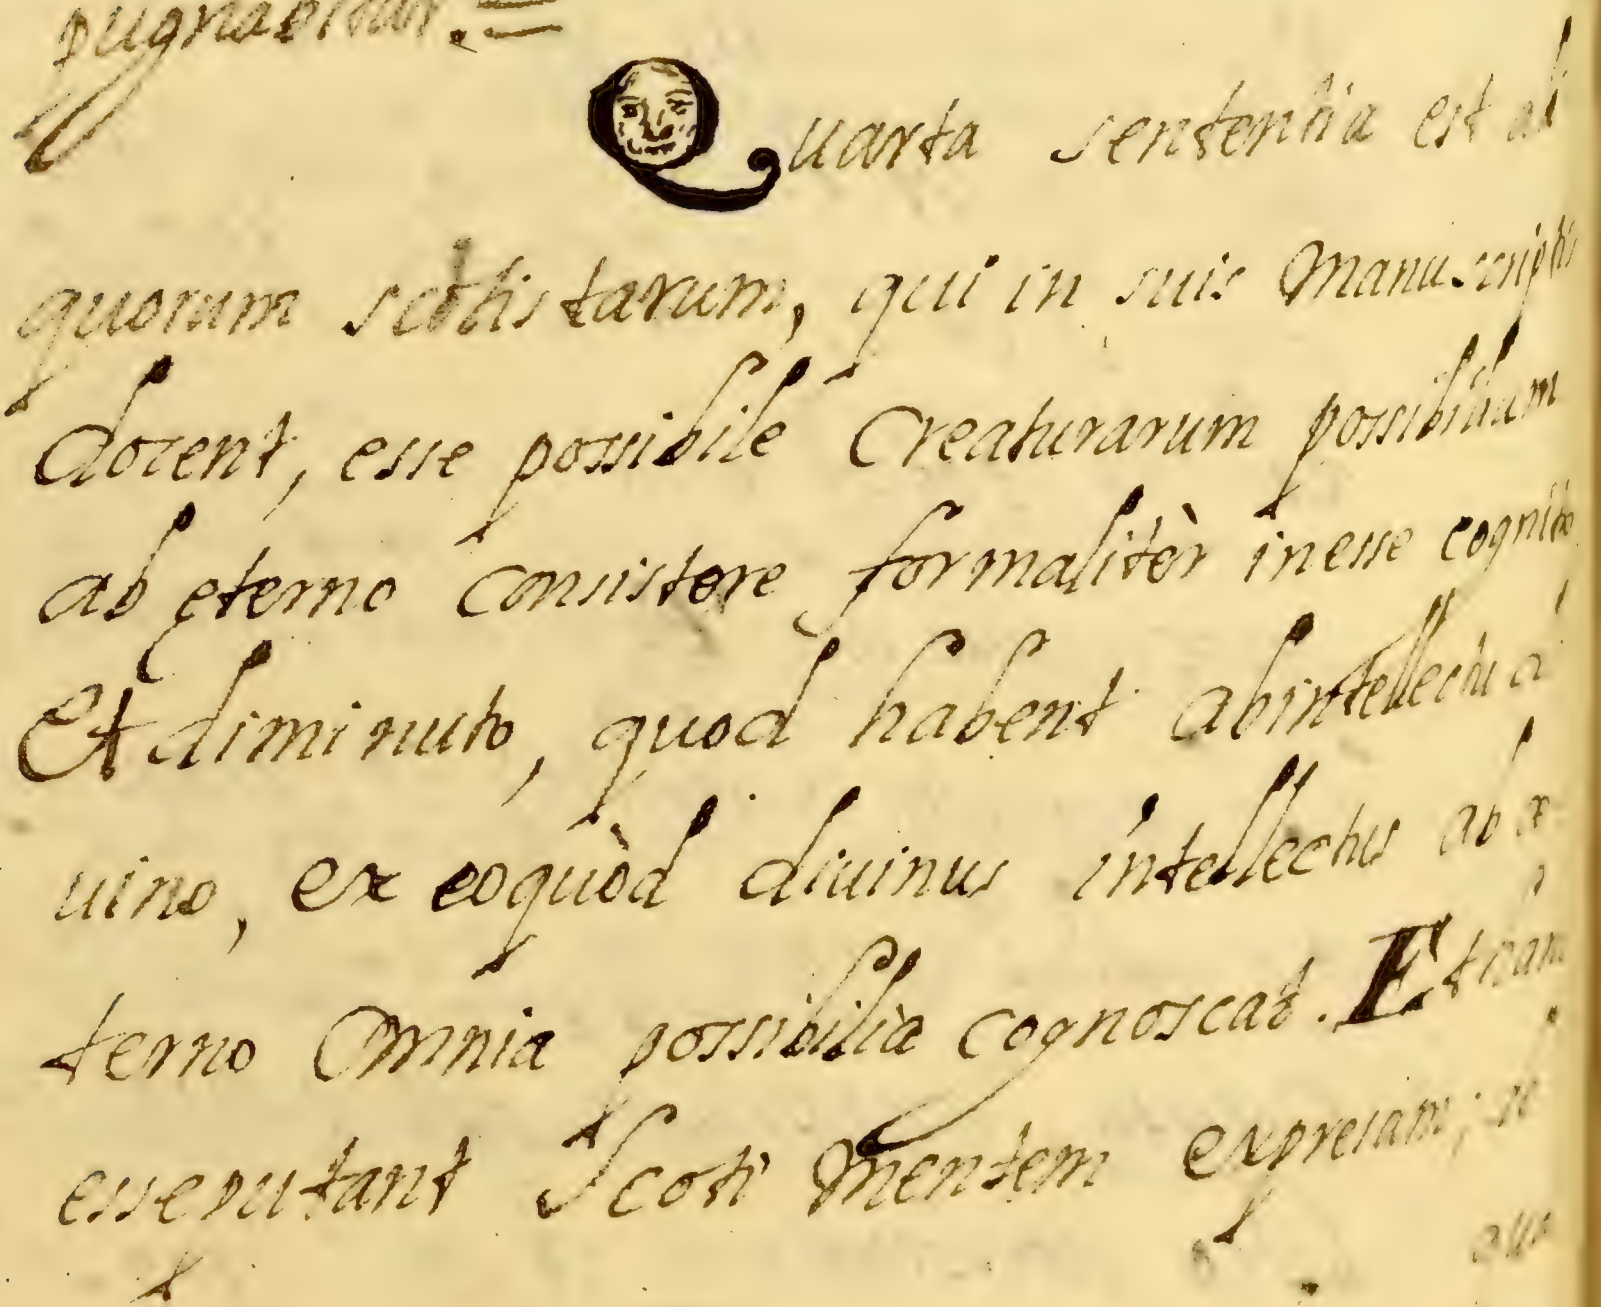 pugnabitur. =
Quarta sententia est ali
quorum scotistarum, qui in suis Manuscriptis
docent, esse possibile Creaturarum possibilium
ab ęterno consistere formalitèr inesse cognito
Et diminuto, quod habent abintellectu di
uino, ex eoquòd diuinus intellectus ab æ
terno Omnia possibilia cognoscat. Et hanc
esseputant Scoti Mentem expresam;